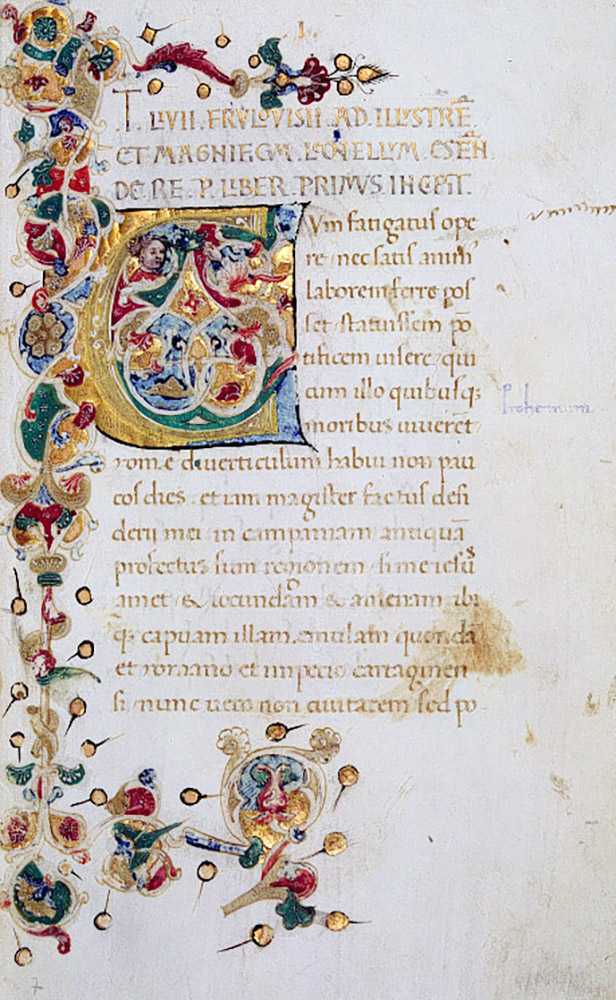 .I.
T. LIVII. FRULOVISII. AD. ILLUSTRĒ.
ET MAGNIFICUM. LEONELLUM. ESTEN.
DE RE. P. LIBER. PRIMUS. INCIPIT.
CVm fatigatus ope
re nec satis animus
laborem ferre pos
set. statuissem pō
tificem uisere, qui
cum illo quibusq;
moribus uiuerēt.
Prohemium
romę diuerticulum habui non pau
cos dies. et iam magister factus desi
derij mei in campaniam antiquā
profectus sum regionem. si me iesus
amet & iocundam & amenam ibi
q; capuam illam. emulam quondā
et romano et imperio cartaginen
si, nunc uero non ciuitatem sed po
7